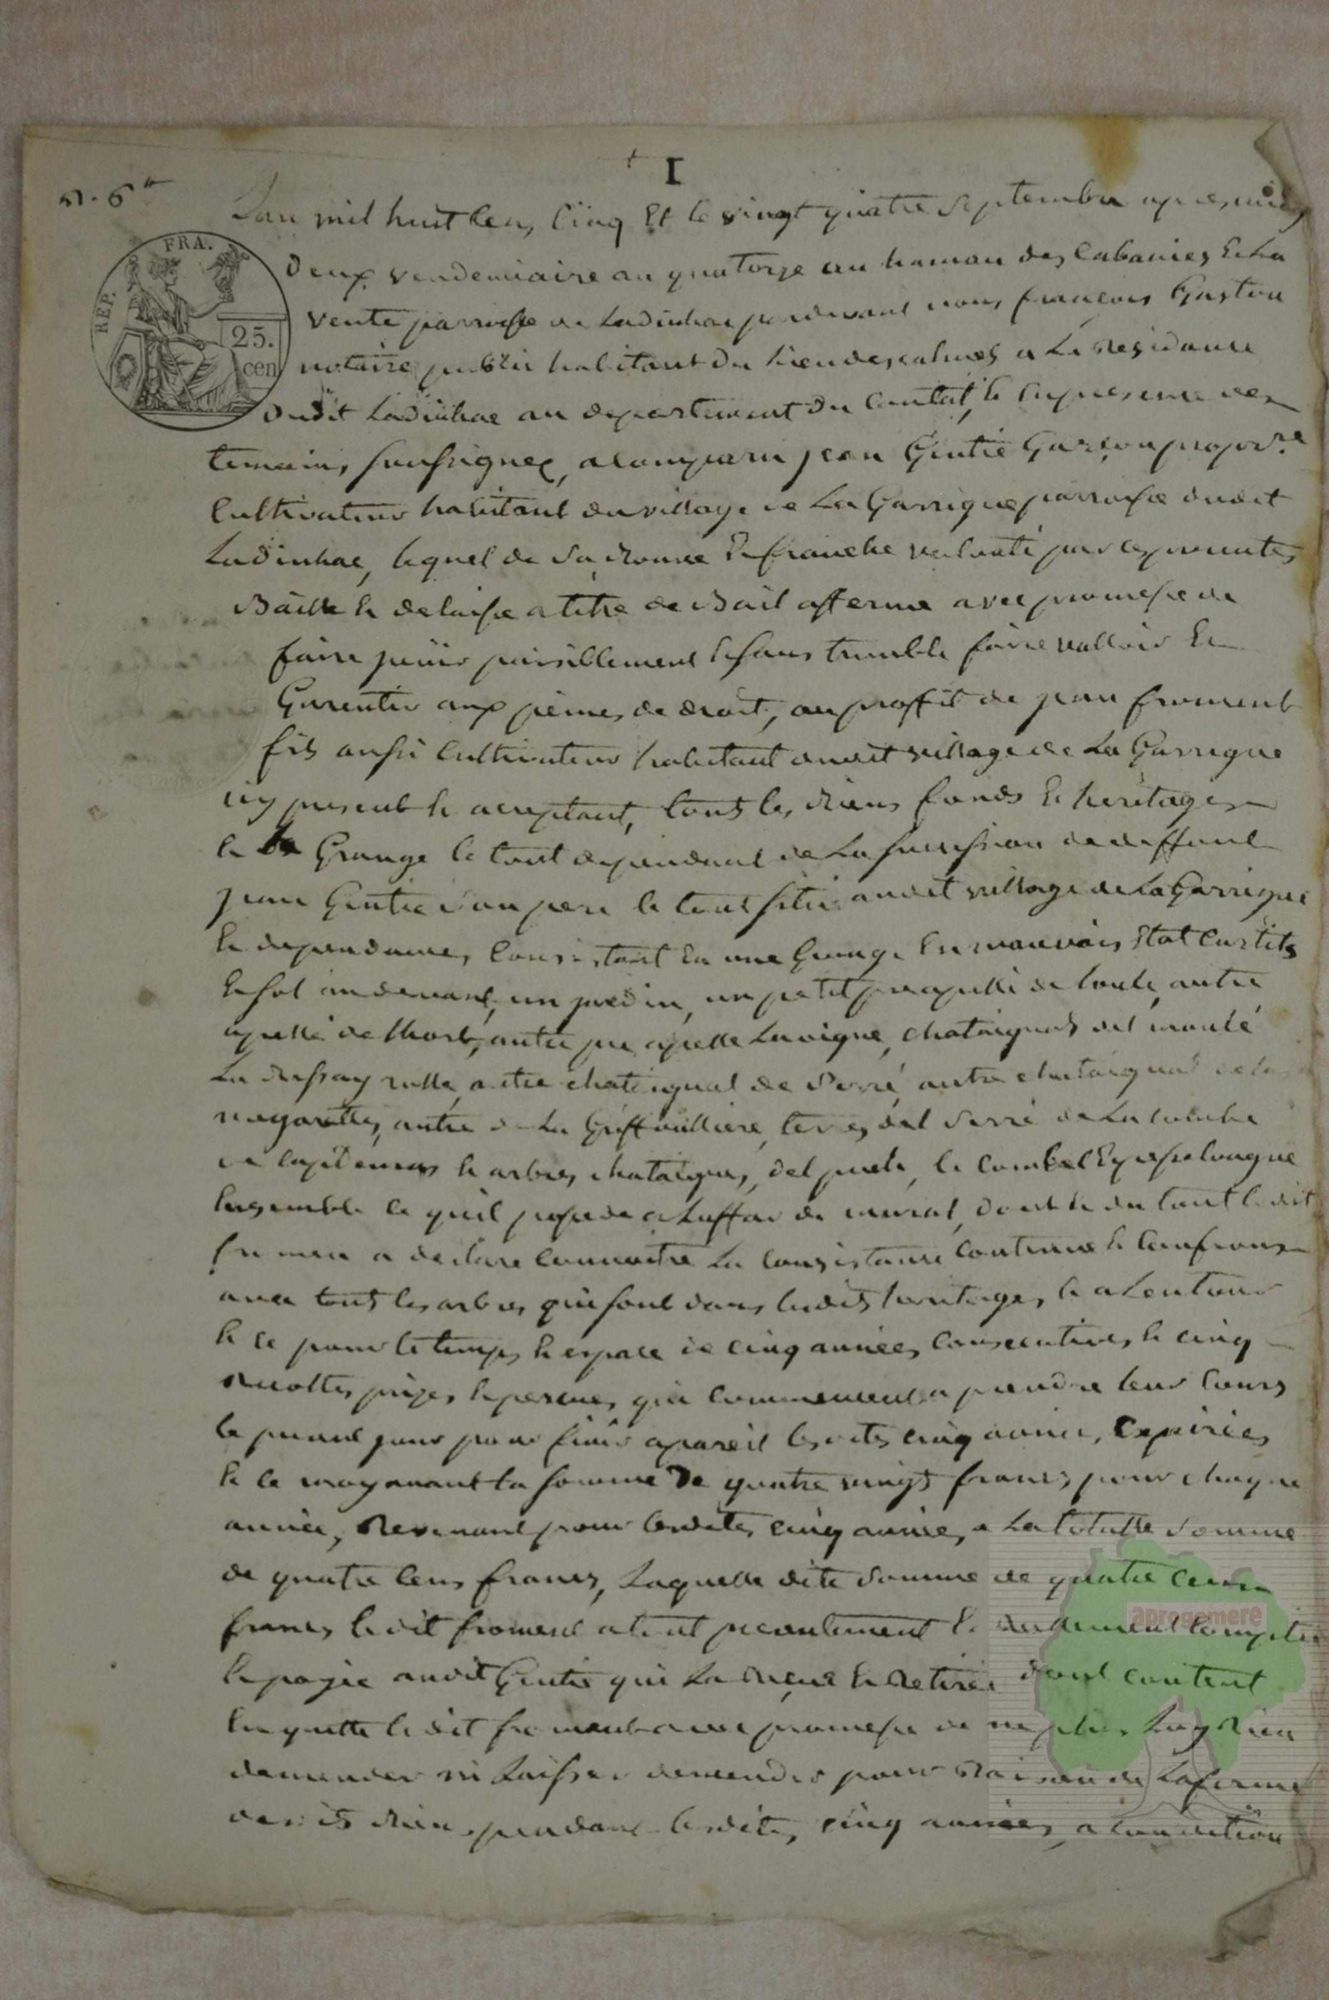 I
n. 6
REP. FRA.
25.
cen
L'an mil huit cens cinq Et le vingt quatre septembre apres midy
deux vendemiaire an quatorze au hamau des Cabanies Et La
vente parroisse de Ladinhac pardevant nous françois Gaston
notaire public habitant du lieu descalmels a La residance
dudit Ladinhac au departement du Cantal, En presence des
temains soussignez, a comparu jean Gintie Garçon propre
Cultivateur habitant du village de La Garrigue parroisse dudit
Ladinhac, lequel de sa bonne Et franche vollonté par ces presentes
Baille Et delaisse a titre de Bail afferme avec promesse de
faire jouir paisiblement Et sans trouble faire valloir Et
Garentir aux peines de droit, au proffit de jean froment
fils aussi Cultivateur habitant audit village de La Garrigue
icy present Et acceptant, tous les biens fonds Et heritages
Et Grange le tout dependant de La succession de deffunt
jean Gintie son pere le tout situé audit village de La Garrigue
Et dependances, Consistant En une Grange En mauvais Etat Curtils
Et sol au devant, un jardin, un petit pre apellé de autre
apellé de autre pre apellé La vigne, chataignal del
La autre chataignal de Serré, autre chataignal
autre de La terres del Serré de La Combe
Et arbres chataigners, del Et
Ensemble ce qu'il possede a de dont Et du tout le dit
froment a declaré Connoitre La Consistance Contenue Et Confrons
avec tous les arbres qui sont dans lesdits heritages Et alentour
Et ce pour le temps Et espace de cinq années Consecutives Et cinq
recoltes prizes Et percues, qui Commencent a prendre leur Cours
le present jour pour finir a pareil lesdites cinq années Expirées
Et ce moyenant la somme De quatre vingt francs pour chaque
année, Revenant pour lesdites cinq années a La totalle somme
de quatre cens francs, Laquelle dite somme de quatre cens
francs ledit froment a tout presentement Et Reellement Compté
Et payé audit Gintie qui La Reçue Et Retirée dont Content
En quitte le dit froment avec promesse de ne plus Luy Rien
demander ni Laisser demander pour Raison de La ferme
desdits biens pendant lesdites cinq années, a Condition
aprogemere